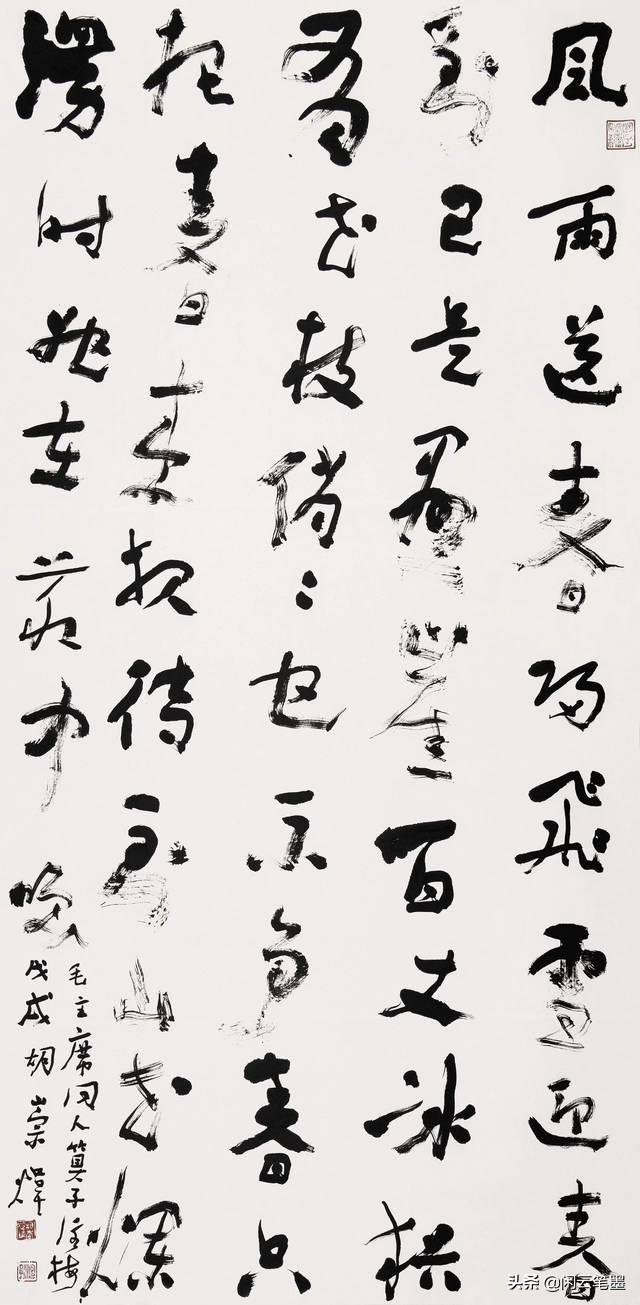 風雨送春归飛雪迎春
到已是懸崖百丈冰猶
有花枝俏〻也不争春只
把春来报待到山花爛
漫时她在丛中笑
毛主席词卜算子咏梅
戊戌胡崇煒
头条 @闲云笔墨